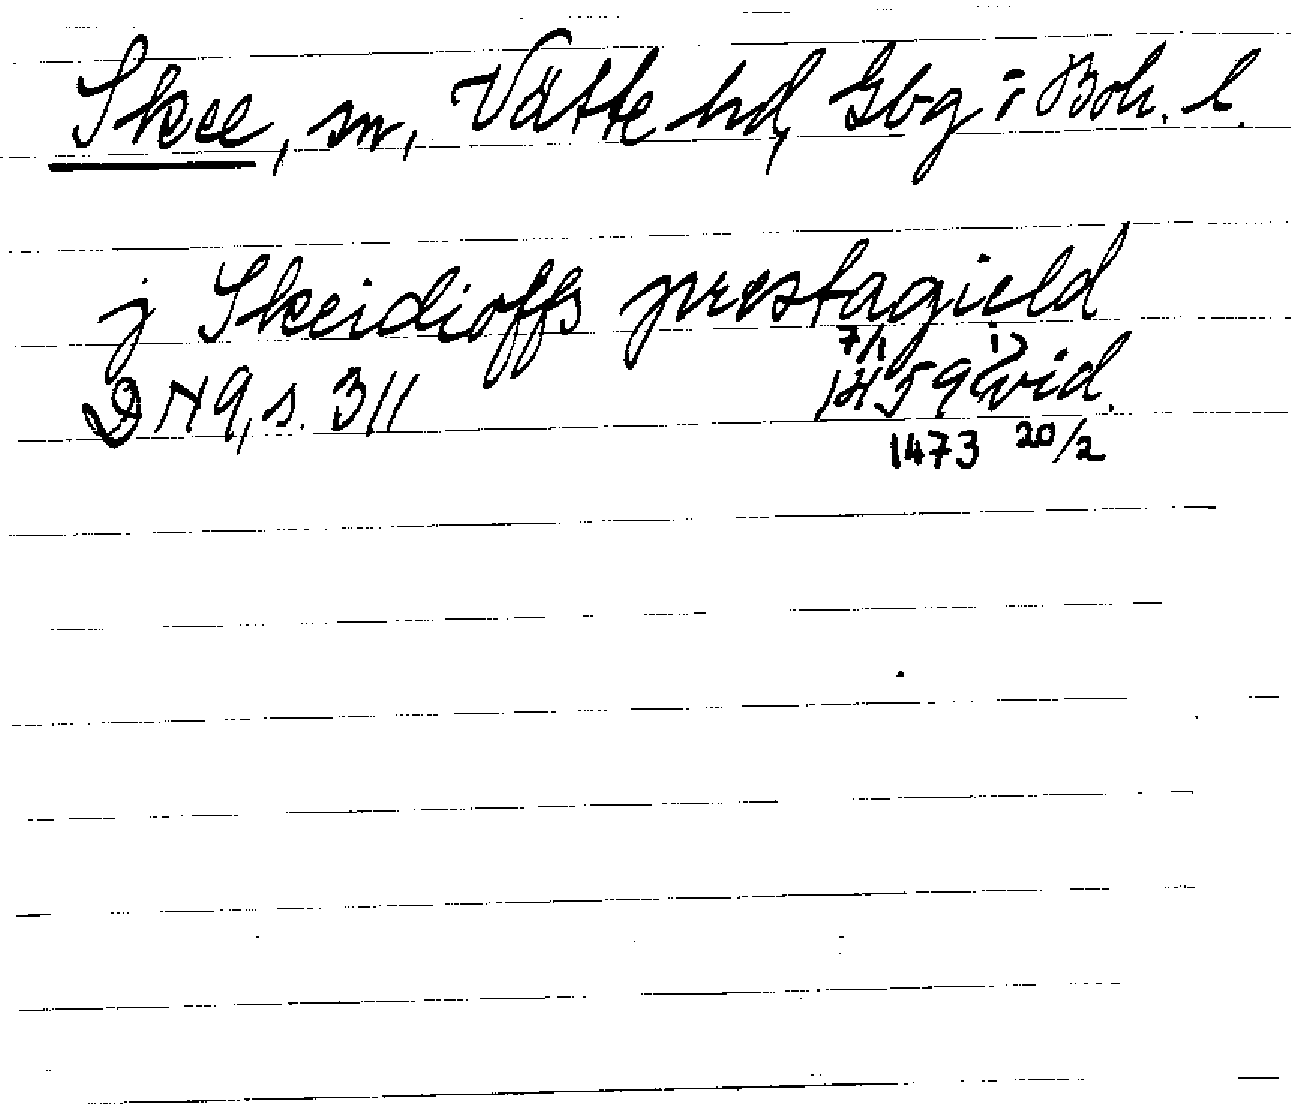 Skee, sn, Vätte hd, Gbg i Boh. l.
j Skeidioffs prestagield
7/1 1459 i vid.
DN 9, s. 311
1473 20/2